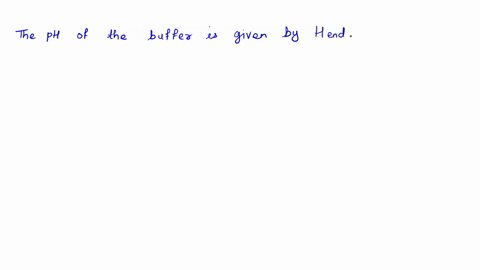 The pH of the buffer is given by Hend.